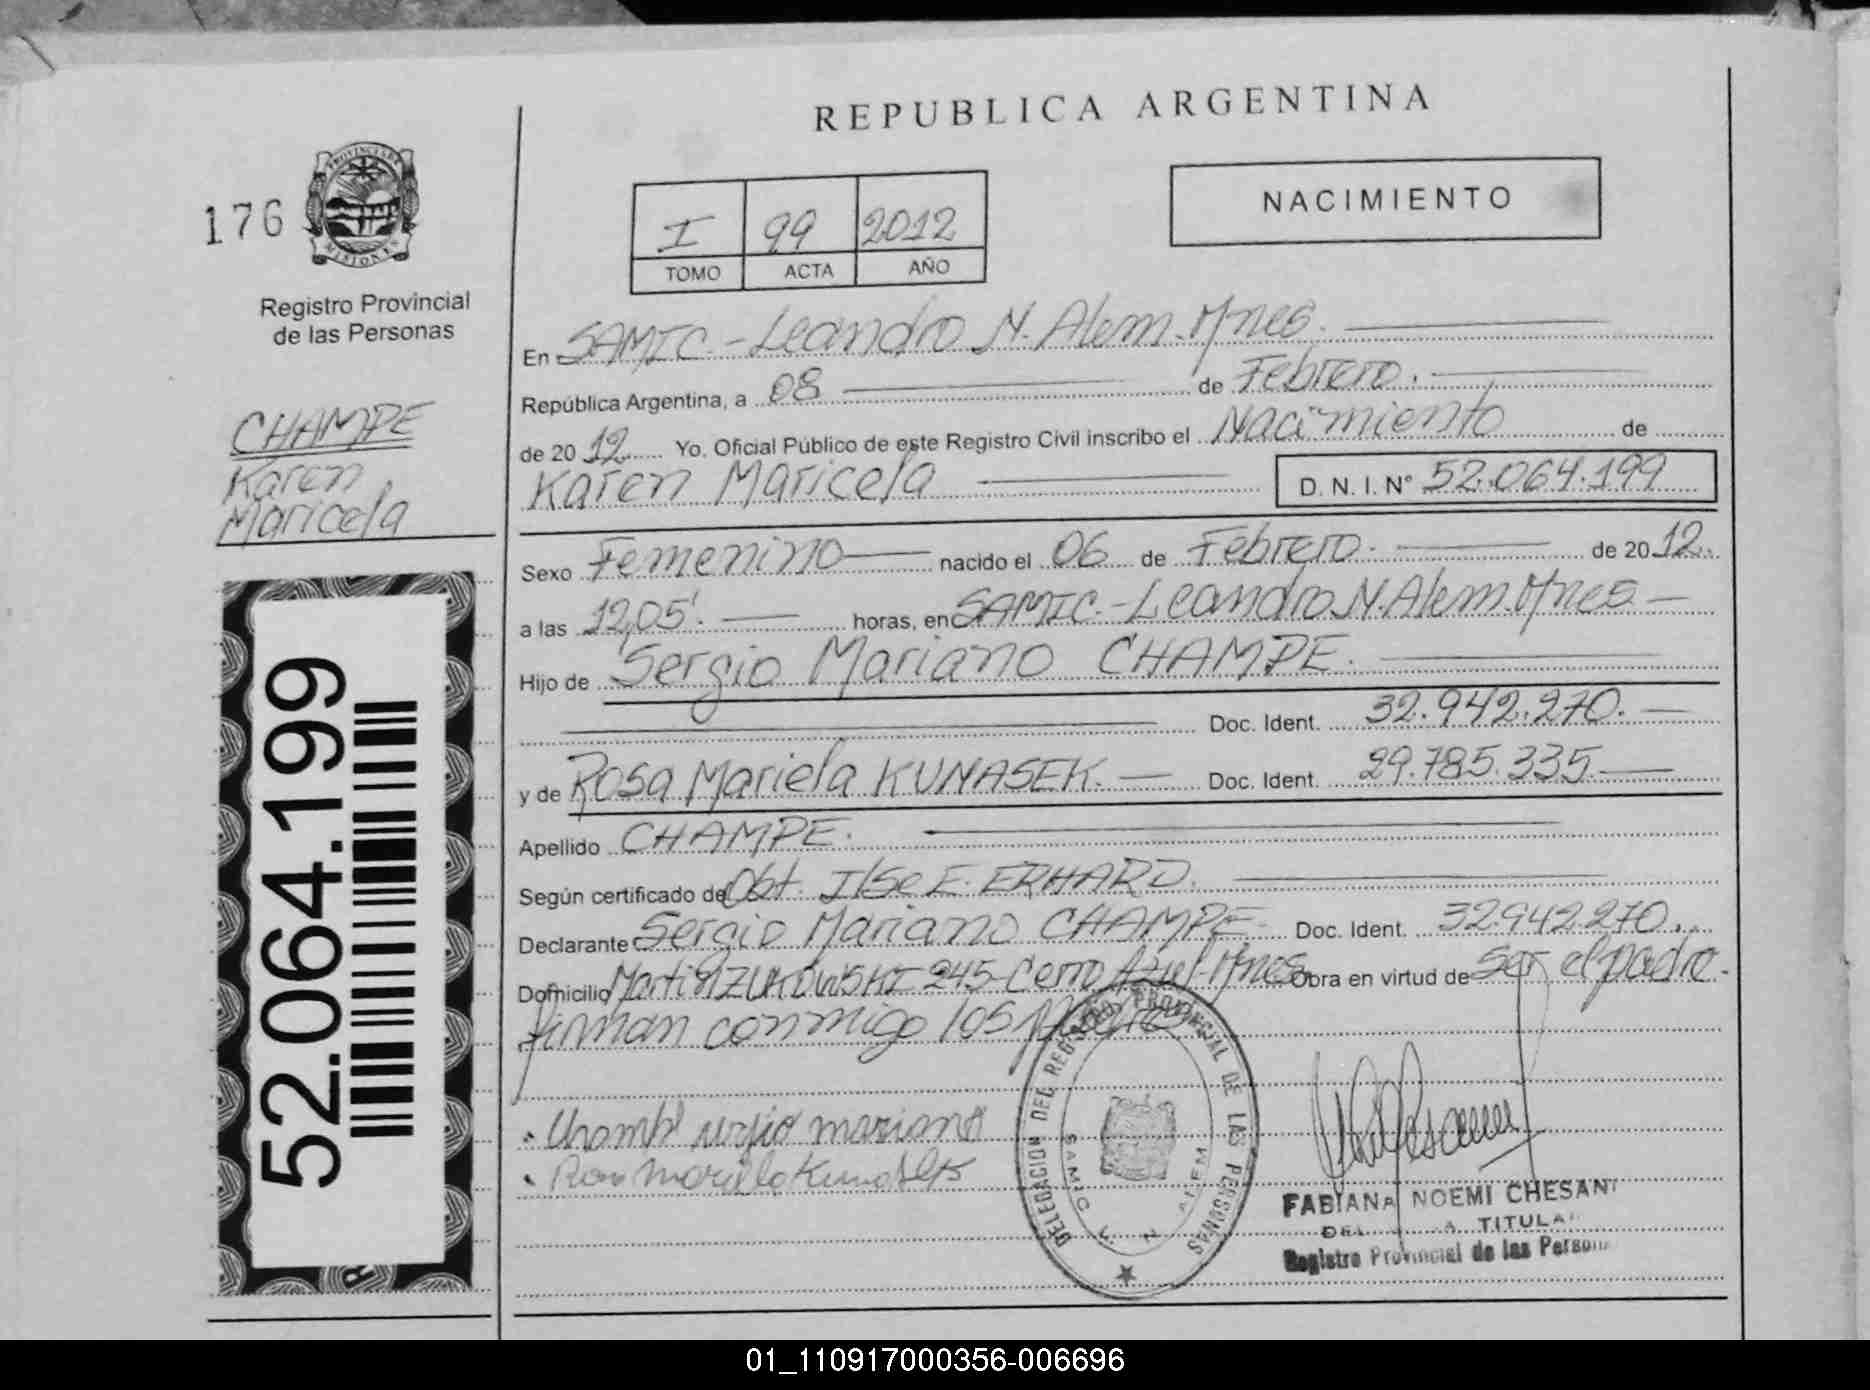 REPUBLICA ARGENTINA
176
PROVINCIA DE
MISIONES
Registro Provincial
de las Personas
I 99 2012
TOMO ACTA AÑO
NACIMIENTO
CHAMPE
Karen
Maricela
52.064.199
En SAMIC.-Leandro N. Alem.Mnes.
República Argentina, a 08 de Febrero.
de 20 12 Yo. Oficial Público de este Registro Civil inscribo el Nacimiento de
Karen Maricela D. N. I. N° 52.064.199
Sexo Femenino nacido el 06 de Febrero. de 20 12.
a las 12,05'. horas, en SAMIC.-Leandro N.Alem.Mnes
Hijo de Sergio Mariano CHAMPE.
Doc. Ident. 32.942.270.
y de Rosa Mariela KUNASEK. Doc. Ident. 29.785.335
Apellido CHAMPE.
Según certificado de Obt. Ilse E. ERHARD.
Declarante Sergio Mariano CHAMPE Doc. Ident. 32942270.
Domicilio 245-Cerro Azul-Mnes Obra en virtud de ser el padre.
firman conmigo los
sergio mariano
DELEGACION DEL REGISTRO PROVINCIAL DE LAS PERSONAS
SAMIC L. N. ALEM
FABIANA NOEMI CHESANI
TITULA
Registro Provincial de las Persona
01_110917000356-006696